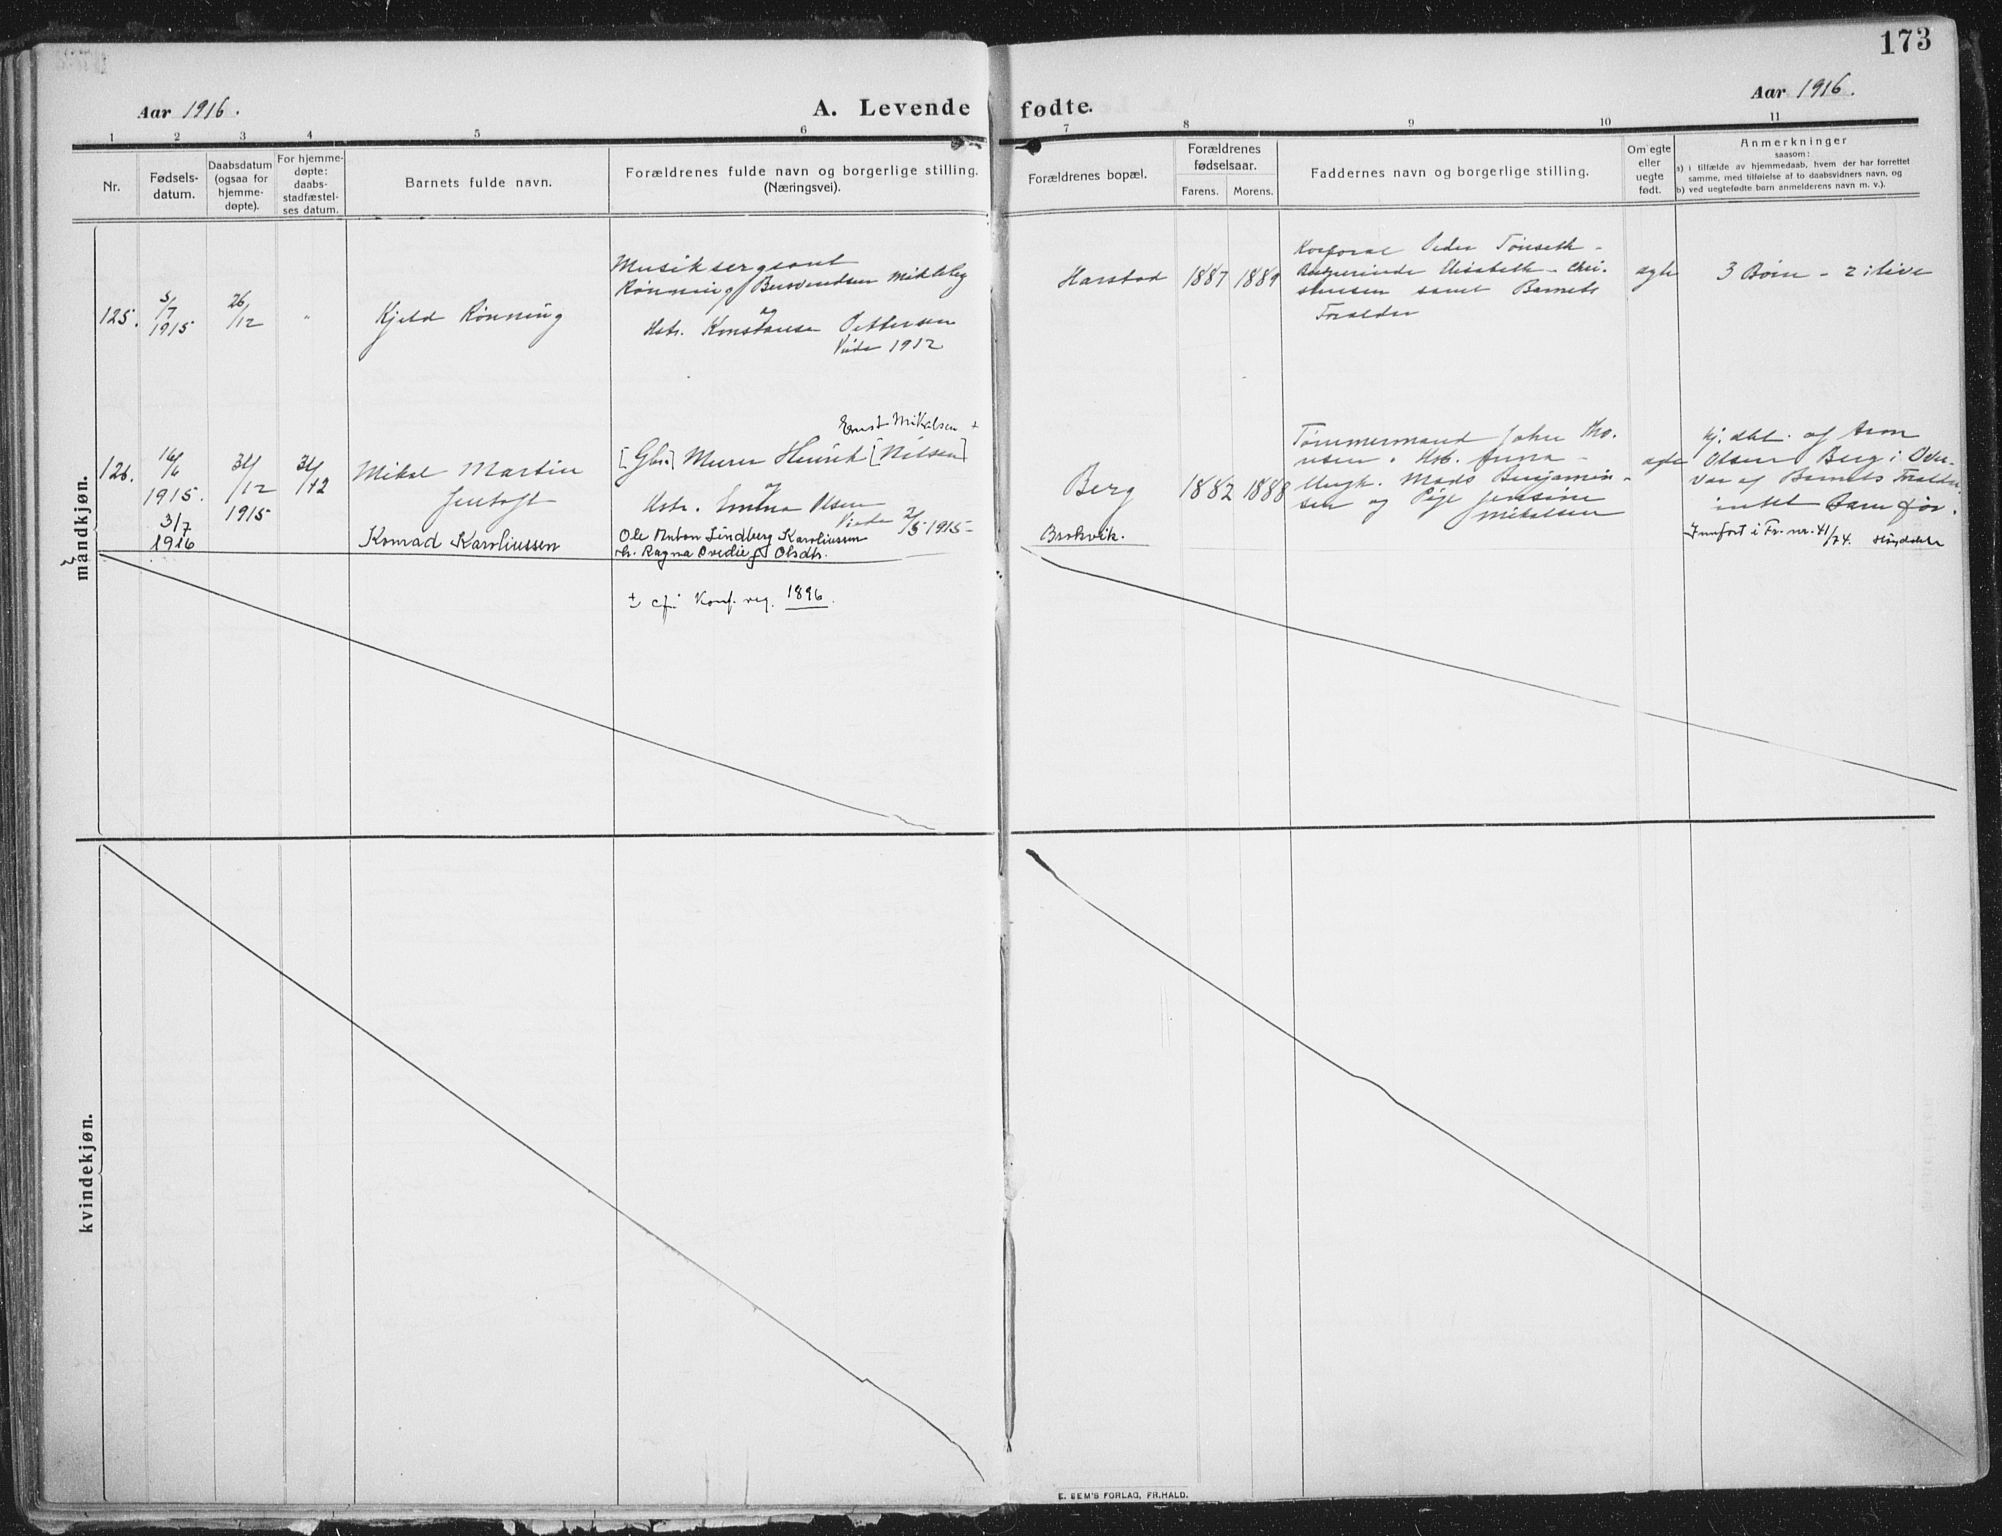 173
Aar 1916.
A. Levende fødte.
Aar 1916.
1 2 3 4 5 6 7 8 9 10 11
Nr.
Fødsels-
datum.
Daabsdatum
(ogsaa for
hjemme-
døpte).
For hjemme-
døpte:
daabs-
stadfæstel-
ses datum.
Barnets fulde navn.
Forældrenes fulde navn og borgerlige stilling.
(Næringsvei).
Forældrenes bopæl.
Forældrenes
fødselsaar.
Farens. Morens.
Faddernes navn og borgerlige stilling.
Om egte
eller
uegte
født.
Anmerkninger
saasom:
a) i tilfælde av hjemmedaab, hvem der har forrettet
samme, med tilføielse af to daabsvidners navn, og
b) ved uegtefødte barn anmelderens navn m. v.).
mandkjøn.
125.
5/7
1915
26
/12
"
Kjeld Rønning
Musiksergeant
Rønning Midtlby
og
Hstr. Konstanse Pettersen
Viede 1912
Harstad
1887
1889
Korporal Peder Tønseth -
Elisabeth - Chri-
stensen samt Barnets
Forældre
ægte
3 Børn - 2 i live
126.
16/6
1915.
31/
/12
1915
31/
/12
Mikal Martin
Jentoft
Ernst Mikalsen +
[Gbr.] Murer Henrik [Nilsen]
og
Hstr. Emma Olsen
Viede 2/5 1915 -
Berg
1882
1888
Tømmermand John Tho-
resen. Hst. Anna -
Ungk. Mads Benjamin-
sen og Pige Jensine
Mikalsen
ægte
Hj.dbt. af Aron
Olsen Berg i Over-
vær af Barnets Forældre
intet Barn før.
3/7
1916
Konrad Karoliussen
Ole Anton Lindberg Karoliussen
h. Ragna Ovedie f. Olsdtr.
Brokvik.
Innført i Fr. nr. 41/74.
+ cfr Konf. reg. 1896.
kvindekjøn.
E. SEM'S FORLAG, FR.HALD.